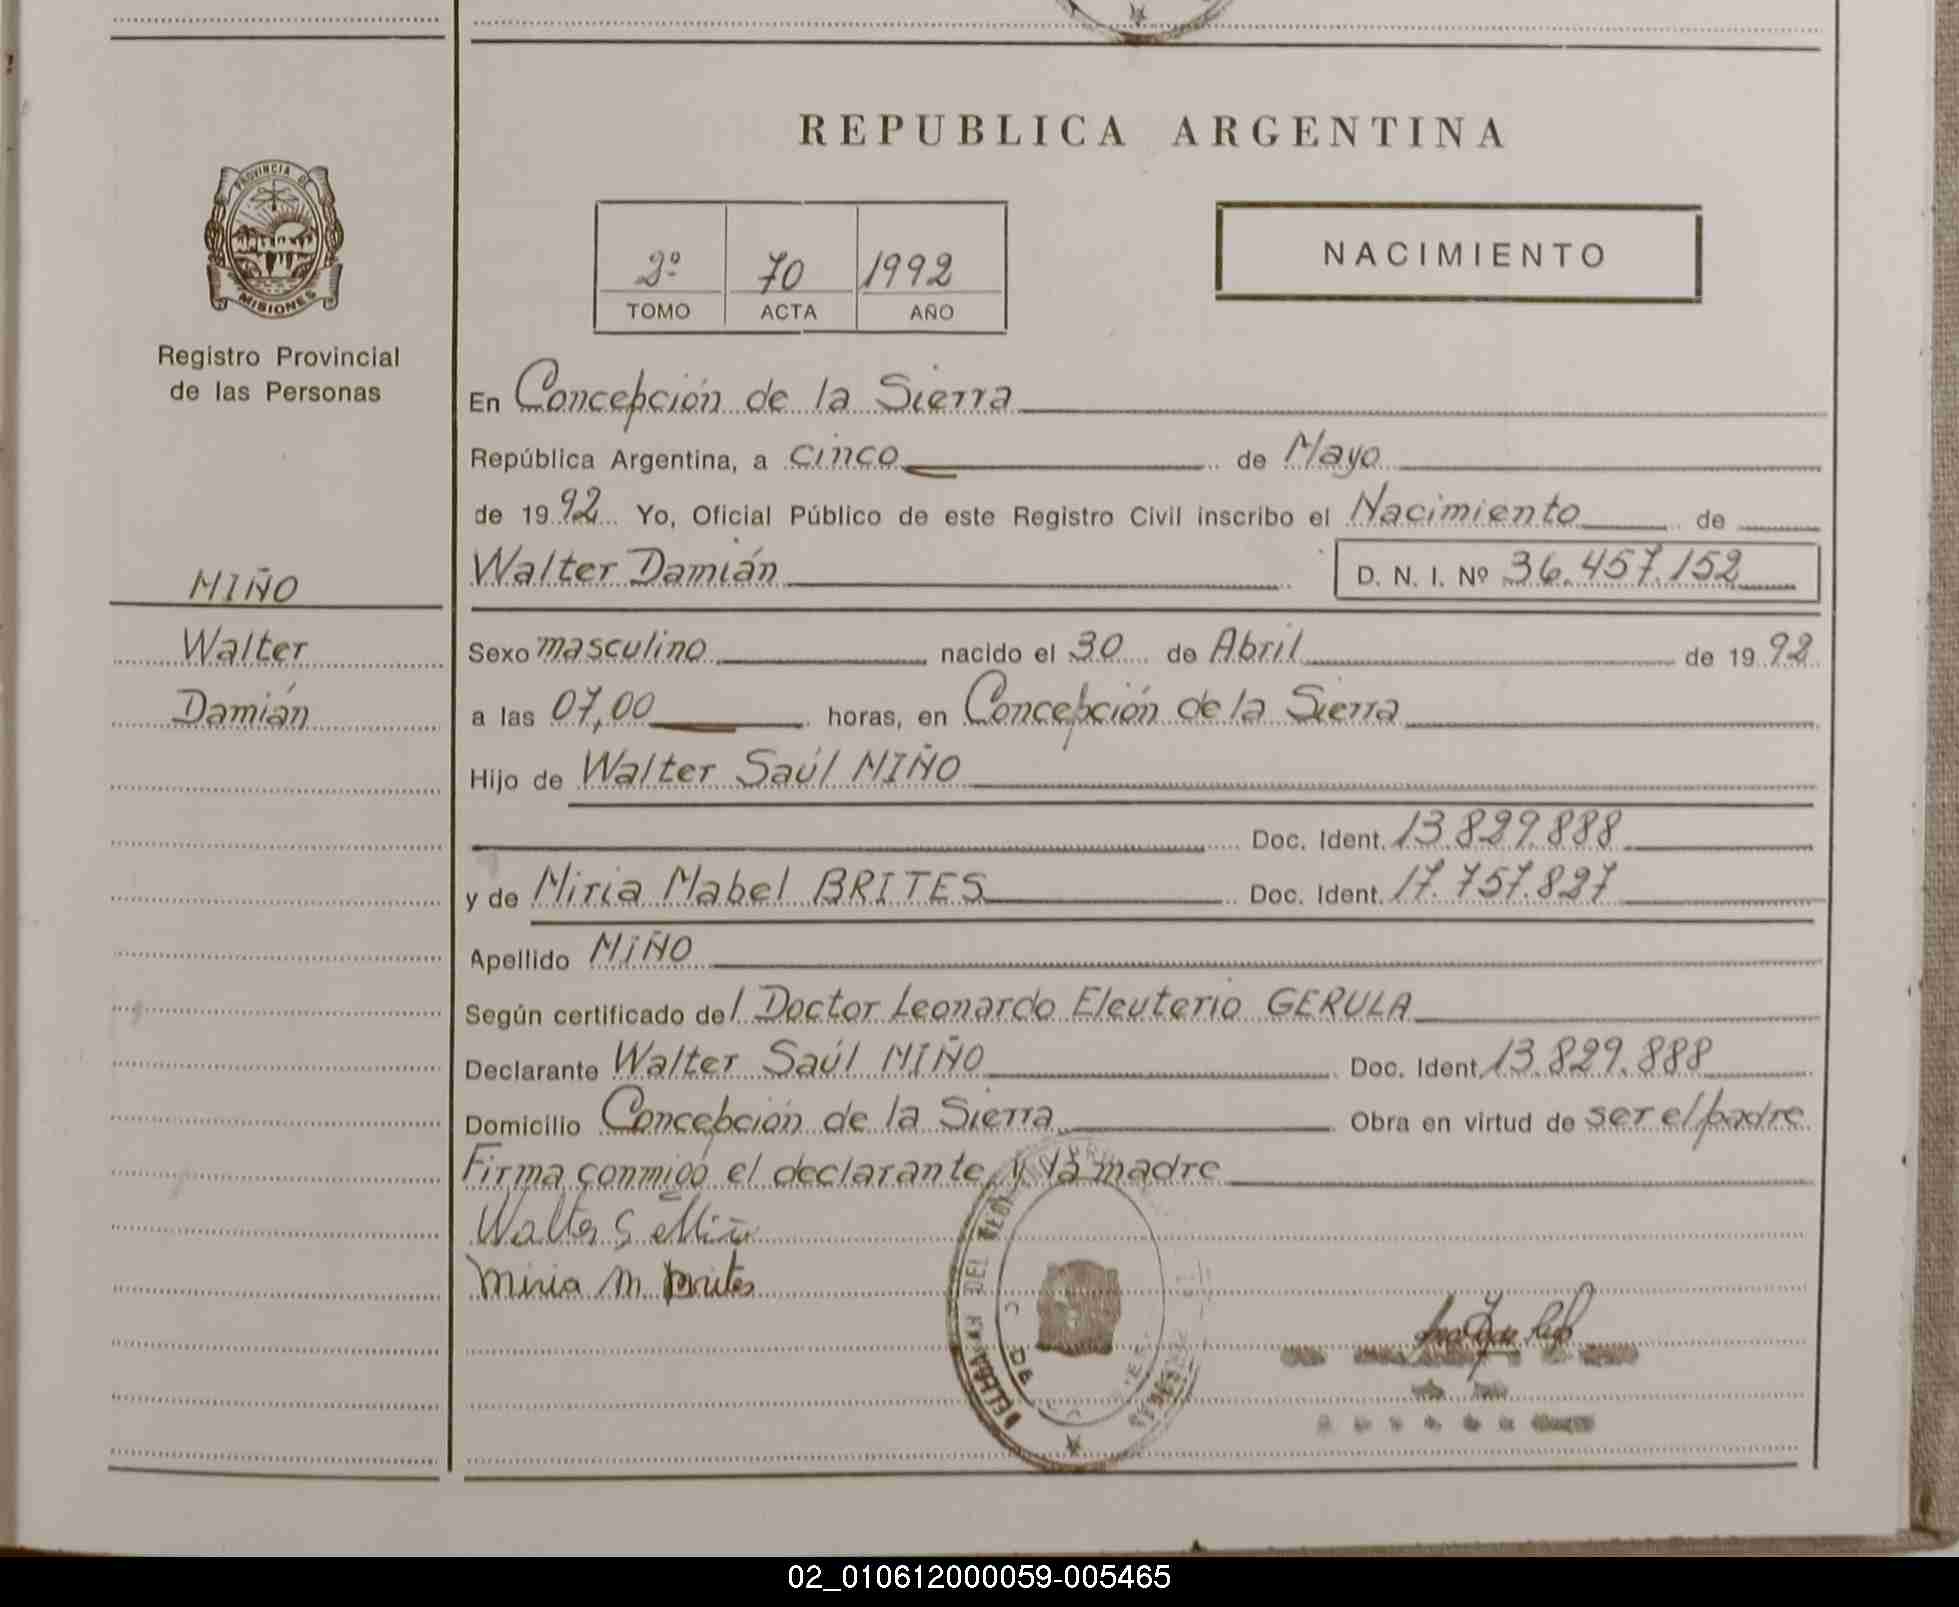 REPUBLICA ARGENTINA
PROVINCIA DE
MISIONES
Registro Provincial
de las Personas
2º 70 1992
TOMO ACTA AÑO
NACIMIENTO
En Concepción de la Sierra
República Argentina, a cinco de Mayo
de 1992 Yo, Oficial Público de este Registro Civil inscribo el Nacimiento de
Walter Damián D. N. I. Nº 36.457.152
MIÑO
Walter
Damián
Sexo masculino nacido el 30 de Abril de 1992
a las 07,00 horas, en Concepción de la Sierra
Hijo de Walter Saúl MIÑO
Doc. Ident. 13.829.888
y de Miria Mabel BRITES Doc. Ident. 17.757.827
Apellido MIÑO
Según certificado del Doctor Leonardo Eleuterio GERULA
Declarante Walter Saúl MIÑO Doc. Ident. 13.829.888
Domicilio Concepción de la Sierra Obra en virtud de ser el padre
Firma conmigo el declarante y la madre
Walter S Miño
Miria M. Brites
DEL
DE
02_010612000059-005465